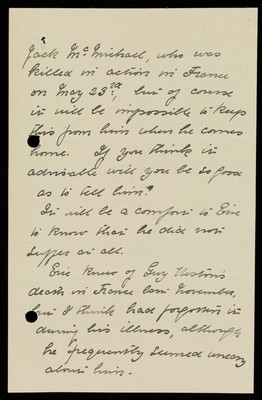 Jack McMichael, who was
killed in action in France
on May 23rd, but of course
it will be impossible to keep
this from him when he comes
home. If you think it
advisable will you be so good
as to tell him?
It will be a comfort to Eric
to know that he did not
suffer at all.
Eric knew of Guy
death in France last November,
but I think had forgotten it
during his illness, although
he frequently seemed uneasy
about him.